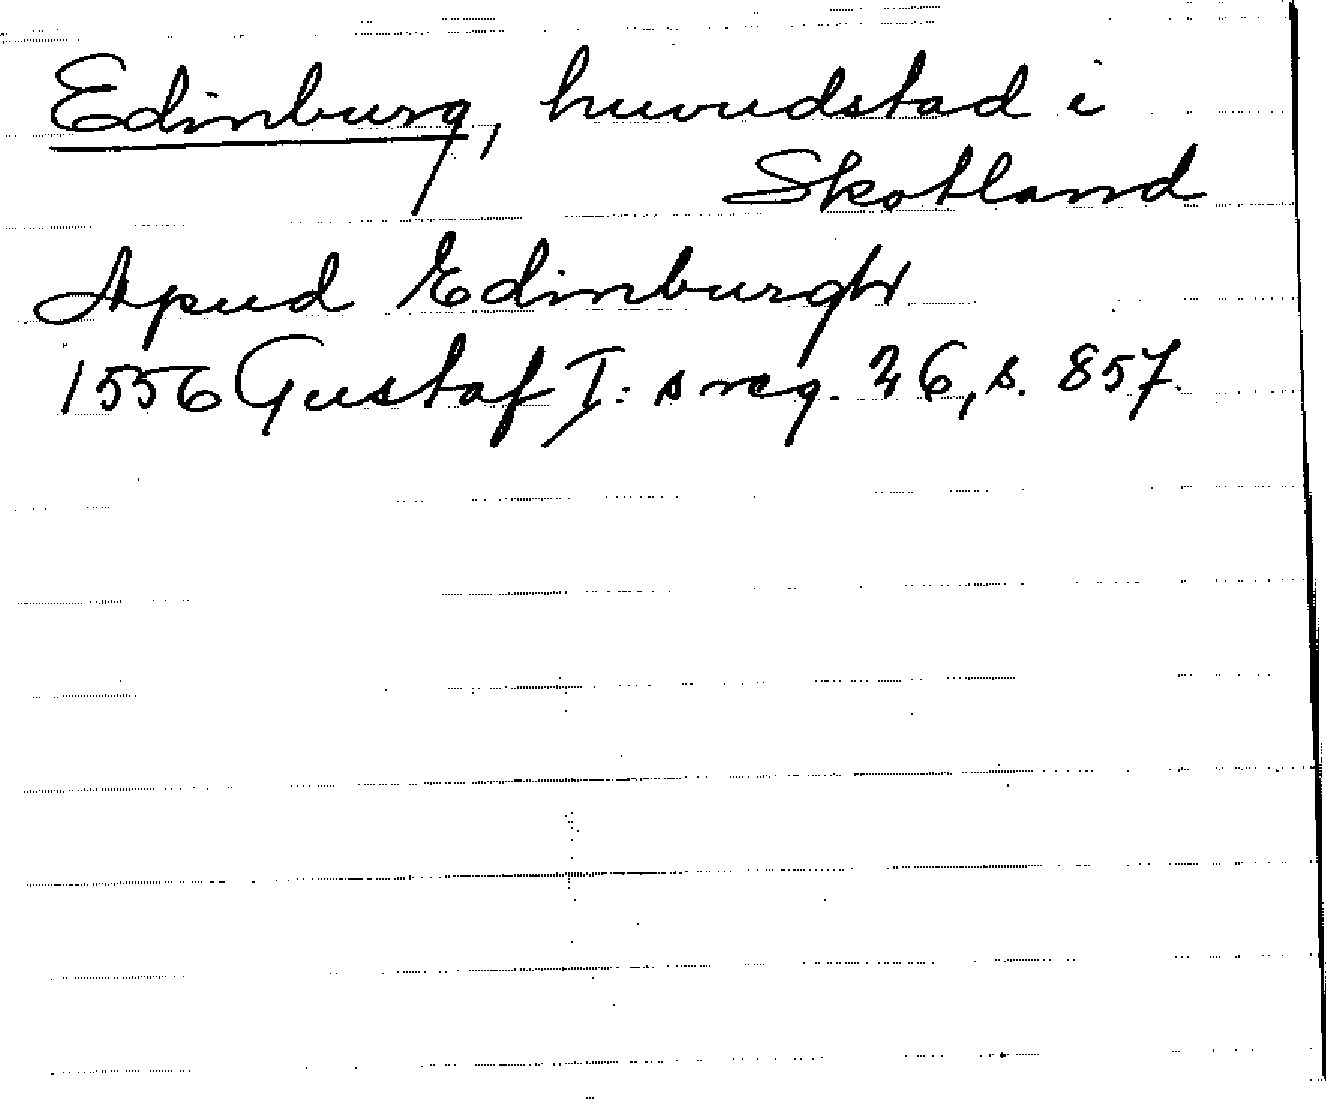 Edinburg, huvudstad i
Skotland
Apud Edinburgh
1556 Gustaf I:s reg. 26, s. 857.